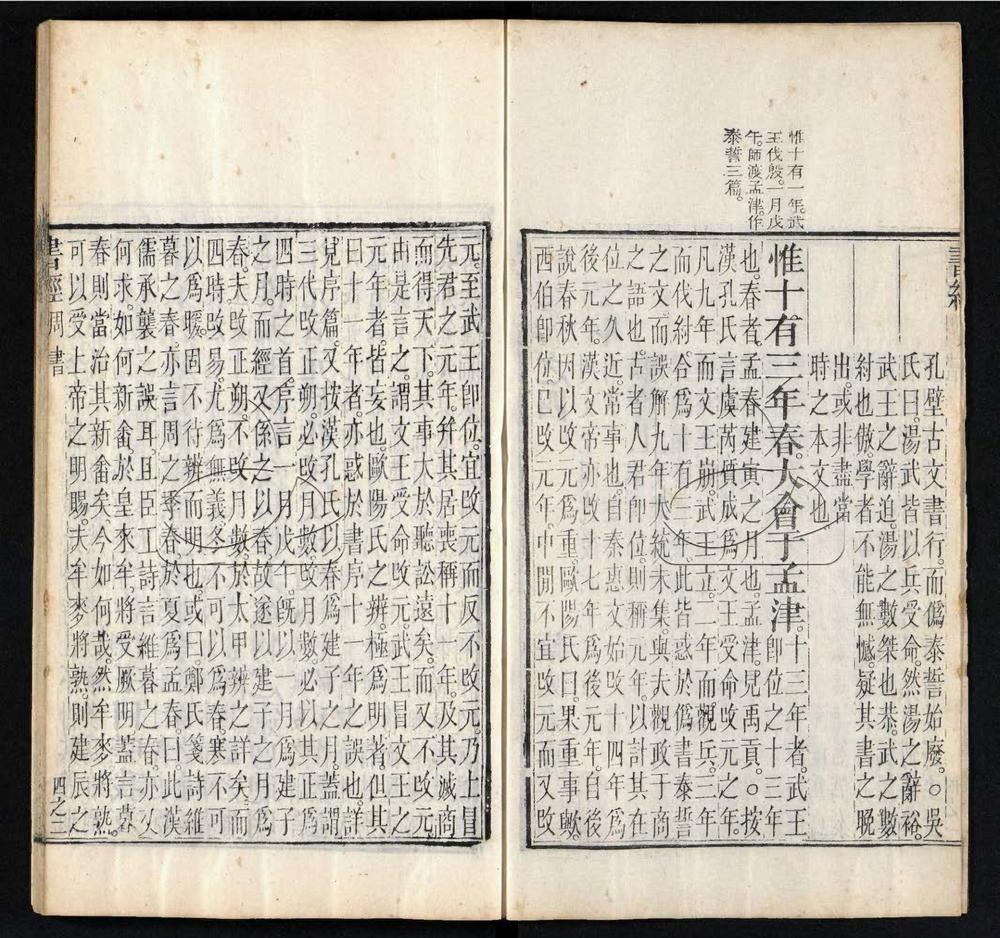 惟十有一年。武
王伐殷。一月戊
午。師渡孟津。作
泰誓三篇。
孔壁古文書行。而偽泰誓始廢。○吳
氏曰。湯武皆以兵受命。然湯之辭裕。
武王之辭迫。湯之數桀也恭。武之數
紂也傲。學者不能無憾。疑其書之晚
出。或非盡當
時之本文也
惟十有三年春。大會于孟津。
十三年者。武王
即位之十三年
也。春者。孟春建寅之月也。孟津。見禹貢。○按
漢孔氏言虞芮質成。爲文王受命改元之年。
凡九年而文王崩。武王立。二年而觀兵。三年
而伐紂。合爲十有三年。此皆惑於偽書泰誓
之文。而誤解九年大統未集。與夫觀政于商
之語也。古者人君即位。則稱元年。以計其在
位之久近。常事也。自秦惠文始改十四年爲
後元年。漢文帝亦改十七年爲後元年。自後
說春秋。因以改元爲重。歐陽氏曰。果重事歟
西伯即位。已改元年。中間不宜改元而又改
元。至武王即位。宜改元而反不改元。乃上冒
先君之元年。并其居喪。稱十一年。及其滅商
而得天下。其事大於聽訟遠矣。而又不改元
由是言之。謂文王受命改元。武王冒文王之
元年者。皆妄也。歐陽氏之辨。極爲明著。但其
曰十一年者。亦惑於書序十一年之誤也。詳
見序篇。又按漢孔氏以春爲建子之月。蓋謂
三代改正朔。必改月數。改月數。必以其正爲
四時之首。序言一月戊午。既以一月爲建子
之月。而經又係之以春。故遂以建子之月爲
春。夫改正朔。不改月數。於太甲辨之詳矣。而
四時改易。尤爲無義。冬不可以爲春。寒不可
以爲暖。固不待辨而明也。或曰。鄭氏箋詩維
暮之春。亦言周之季春。於夏爲孟春。曰此漢
儒承襲之誤耳。且臣工詩言維暮之春。亦又
何求。如何新畬。於皇來牟。將受厥明。蓋言暮
春則當治其新畬矣。今如何哉。然牟麥將熟。
可以受上帝之明賜。夫牟麥將熟。則建辰之
書經 周書 四之三